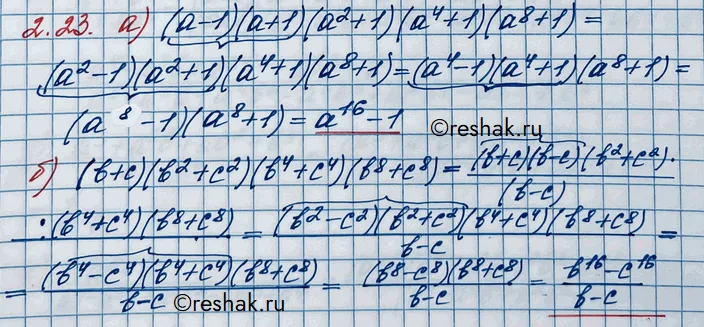 2.23. а) (a-1)(a+1)(a²+1)(a⁴+1)(a⁸+1)=
(a²-1)(a²+1)(a⁴+1)(a⁸+1)=(a⁴-1)(a⁴+1)(a⁸+1)=
(a⁸-1)(a⁸+1)=a¹⁶-1
©reshak.ru
б) (b+c)(b²+c²)(b⁴+c⁴)(b⁸+c⁸)=(b+c)(b-c)(b²+c²)·
(b-c)
:(b⁴+c⁴)(b⁸+c⁸) = (b²-c²)(b²+c²)(b⁴+c⁴)(b⁸+c⁸) =
b-c
= (b⁴-c⁴)(b⁴+c⁴)(b⁸+c⁸) = (b⁸-c⁸)(b⁸+c⁸) = b¹⁶-c¹⁶
b-c b-c b-c
©reshak.ru